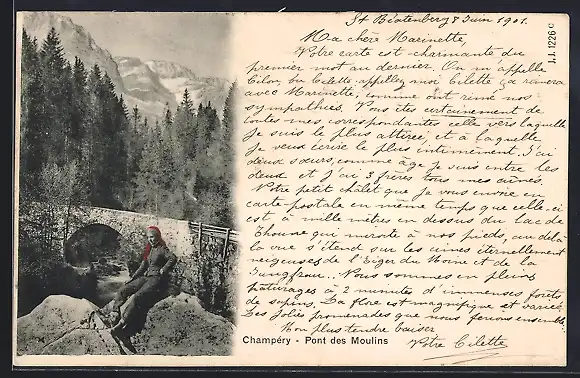 St Béatenberg 8 Juin 1901.
Ma chère Marinette,
Votre carte est charmante du
premier mot au dernier. On m'appelle
Cilon, ou Cilette appellez moi Cilette ça rimera
avec Marinette, comme ont rimé nos
sympathies. Vous êtes certainement de
toutes mes correspondantes celle vers laquelle
je suis le plus attirée, et à laquelle
je veux écrire le plus intimement. J'ai
deux sœurs, comme âge je suis entre les
deux et j'ai 3 frères tous mes aînés
Votre petit châlet que je vous envoie en
carte-postale en même temps que celle-ci
est à mille mètres en dessus du lac de
Thoune qui miroite à nos pieds, au delà
la vue s'étend sur les cimes éternellement
neigeuses de l'Eiger du Moine et de la
Jungfrau... Nous sommes en pleins
pâturages à 2 minutes d'immenses forêts
de sapins. La flore est magnifique et variée
Les jolies promenades que nous ferions ensemble
Mon plus tendre baiser
Votre Cilette
Champéry - Pont des Moulins
J.J. 1226 C